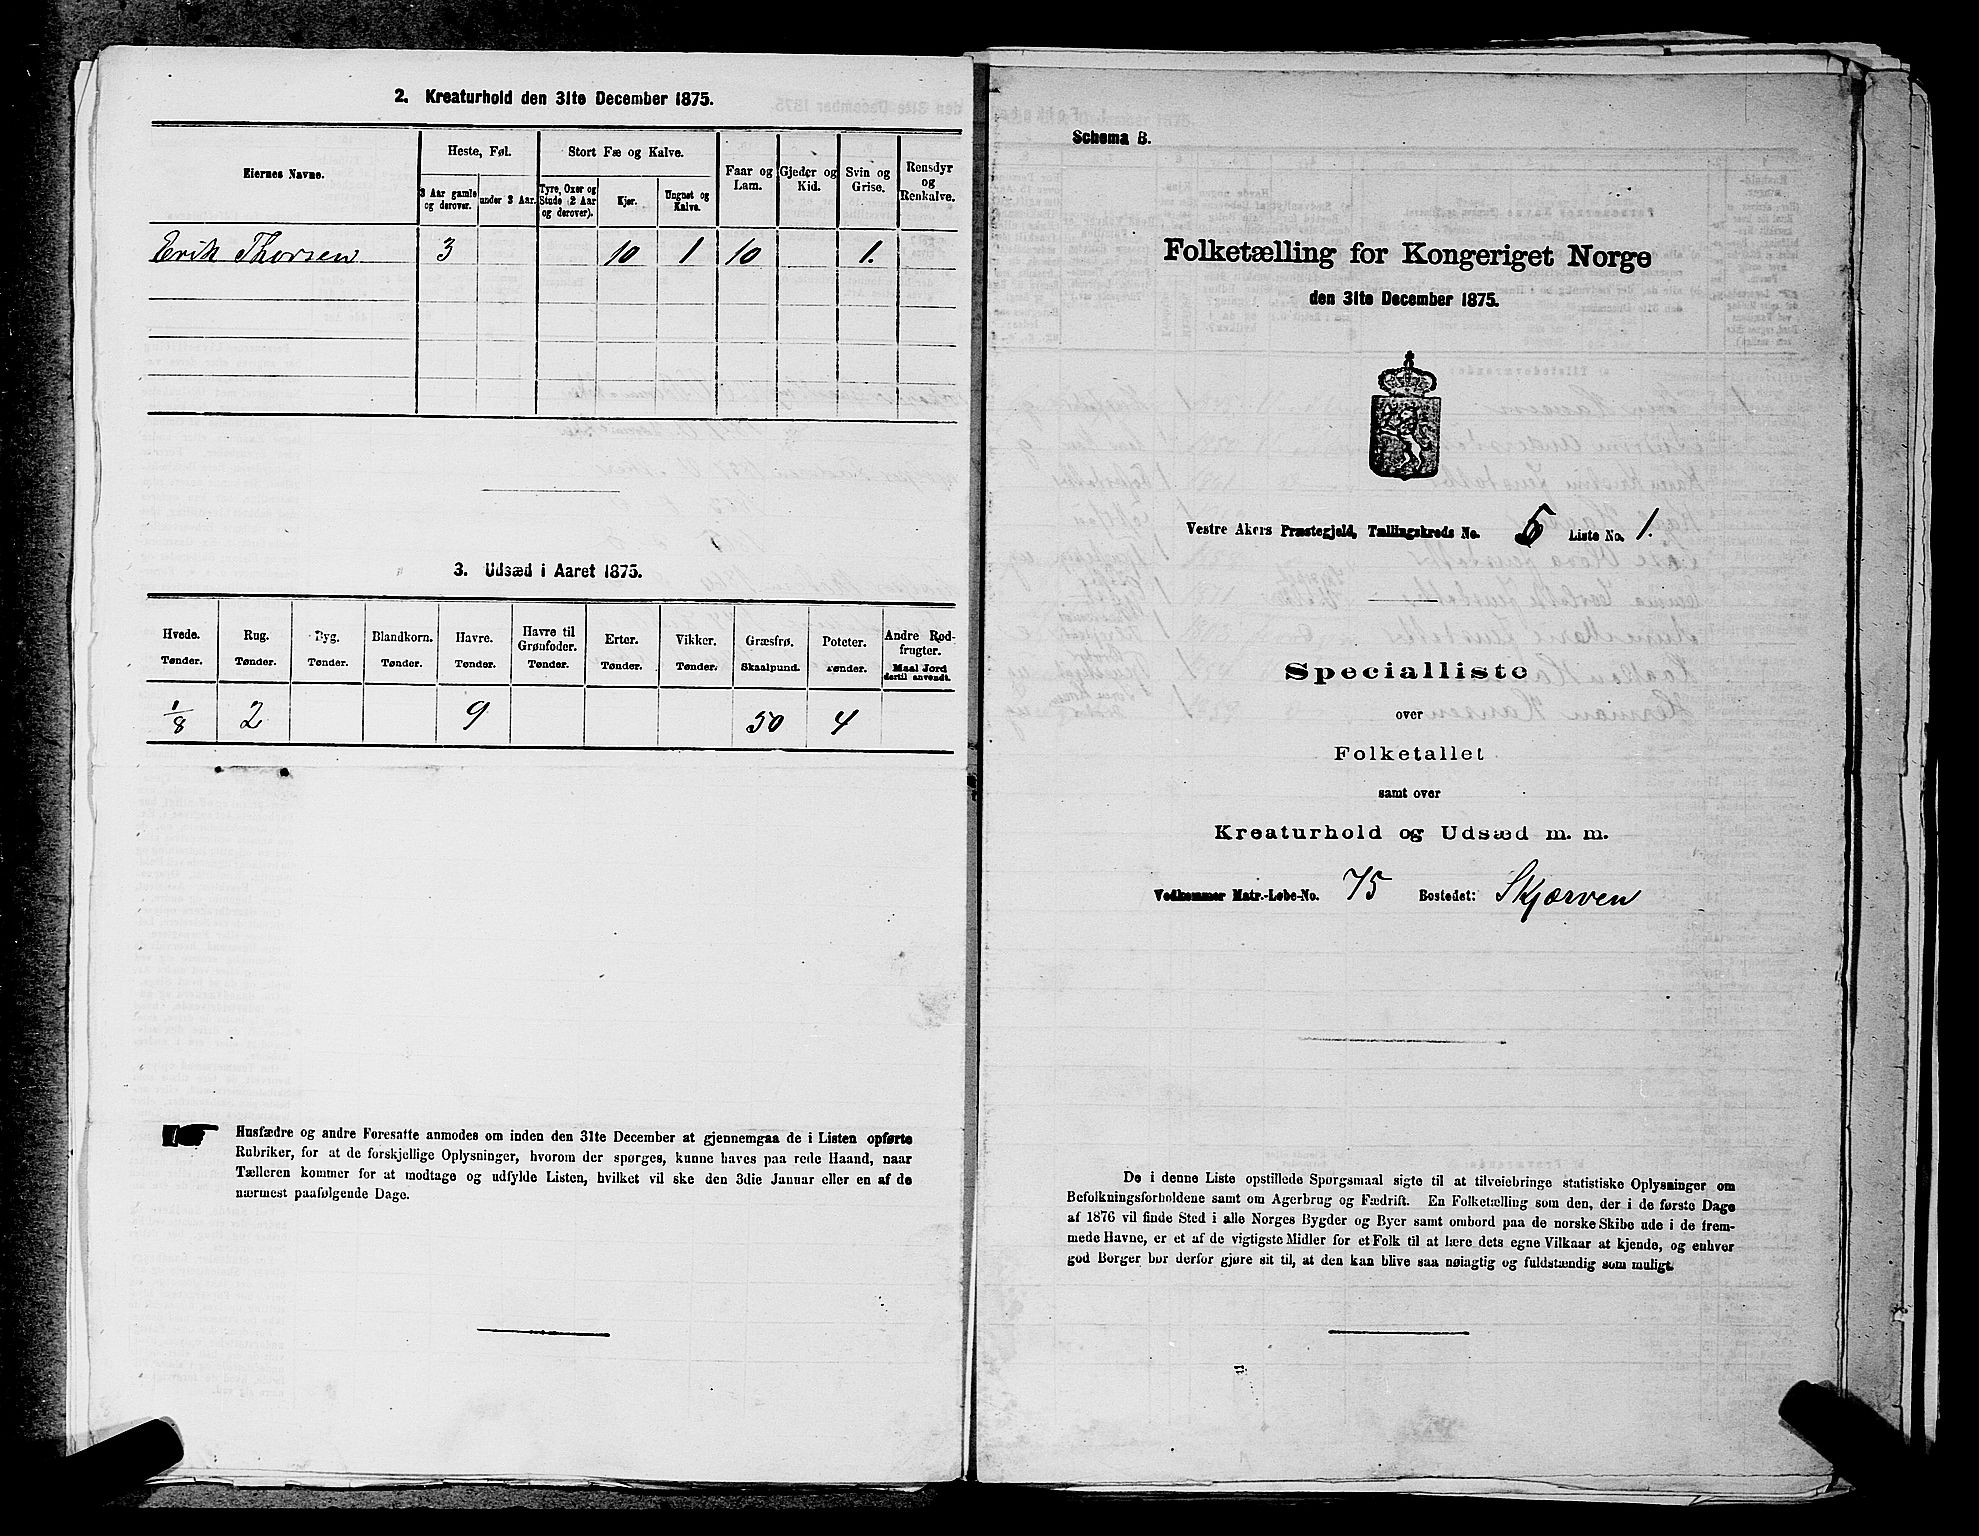 2. Kreaturhold den 31te December 1875.
Eiernes Navne.
Heste, Føl.
Stort Fæ og Kalve.
Faar og Lam.
Gjeder og Kid.
Svin og Grise.
Rensdyr og Renkalve.
3 Aar gamle og derover.
under 3 Aar.
Tyre, Oxer og Stude (2 Aar og derover).
Kjør.
Ungnøt og Kalve.
Erik Thorsen 3 10 1 10 1.
3. Udsæd i Aaret 1875.
Hvede. Rug. Byg. Blandkorn. Havre. Havre til Grønfoder. Erter. Vikker. Græsfrø. Poteter. Andre Rodfrugter.
Tønder. Tønder. Tønder. Tønder. Tønder. Tønder. Tønder. Tønder. Skaalpund. Tønder. Maal Jord dertil anvendt.
1/8 2 9 50 4
Husfædre og andre Foresatte anmodes om inden den 31te December at gjennemgaa de i Listen opførte
Rubriker, for at de forskjellige Oplysninger, hvorom der spørges, kunne haves paa rede Haand, naar
Tælleren kommer for at modtage og udfylde Listen, hvilket vil ske den 3die Januar eller en af de
nærmest paafølgende Dage.
Schema B.
Folketælling for Kongeriget Norge
den 31te December 1875.
Vestre Akers Præstegjeld, Tællingskreds No. 5 Liste No. 1.
Specialliste
over
Folketallet
samt over
Kreaturhold og Udsæd m. m.
Vedkommer Matr.-Løbe-No. 75 Bostedet: Skjærven
De i denne Liste opstillede Spørgsmaal sigte til at tilveiebringe statistiske Oplysninger om
Befolkningsforholdene samt om Agerbrug og Fædrift. En Folketælling som den, der i de første Dage
af 1876 vil finde Sted i alle Norges Bygder og Byer samt ombord paa de norske Skibe ude i de frem-
mede Havne, er et af de vigtigste Midler for et Folk til at lære dets egne Vilkaar at kjende, og enhver
god Borger bør derfor gjøre sit til, at den kan blive saa nøiagtig og fuldstændig som muligt.